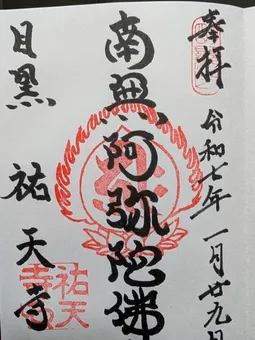 奉拝
令和七年一月廿九日
南無阿弥陀佛
目黒 祐天寺
祐天
寺